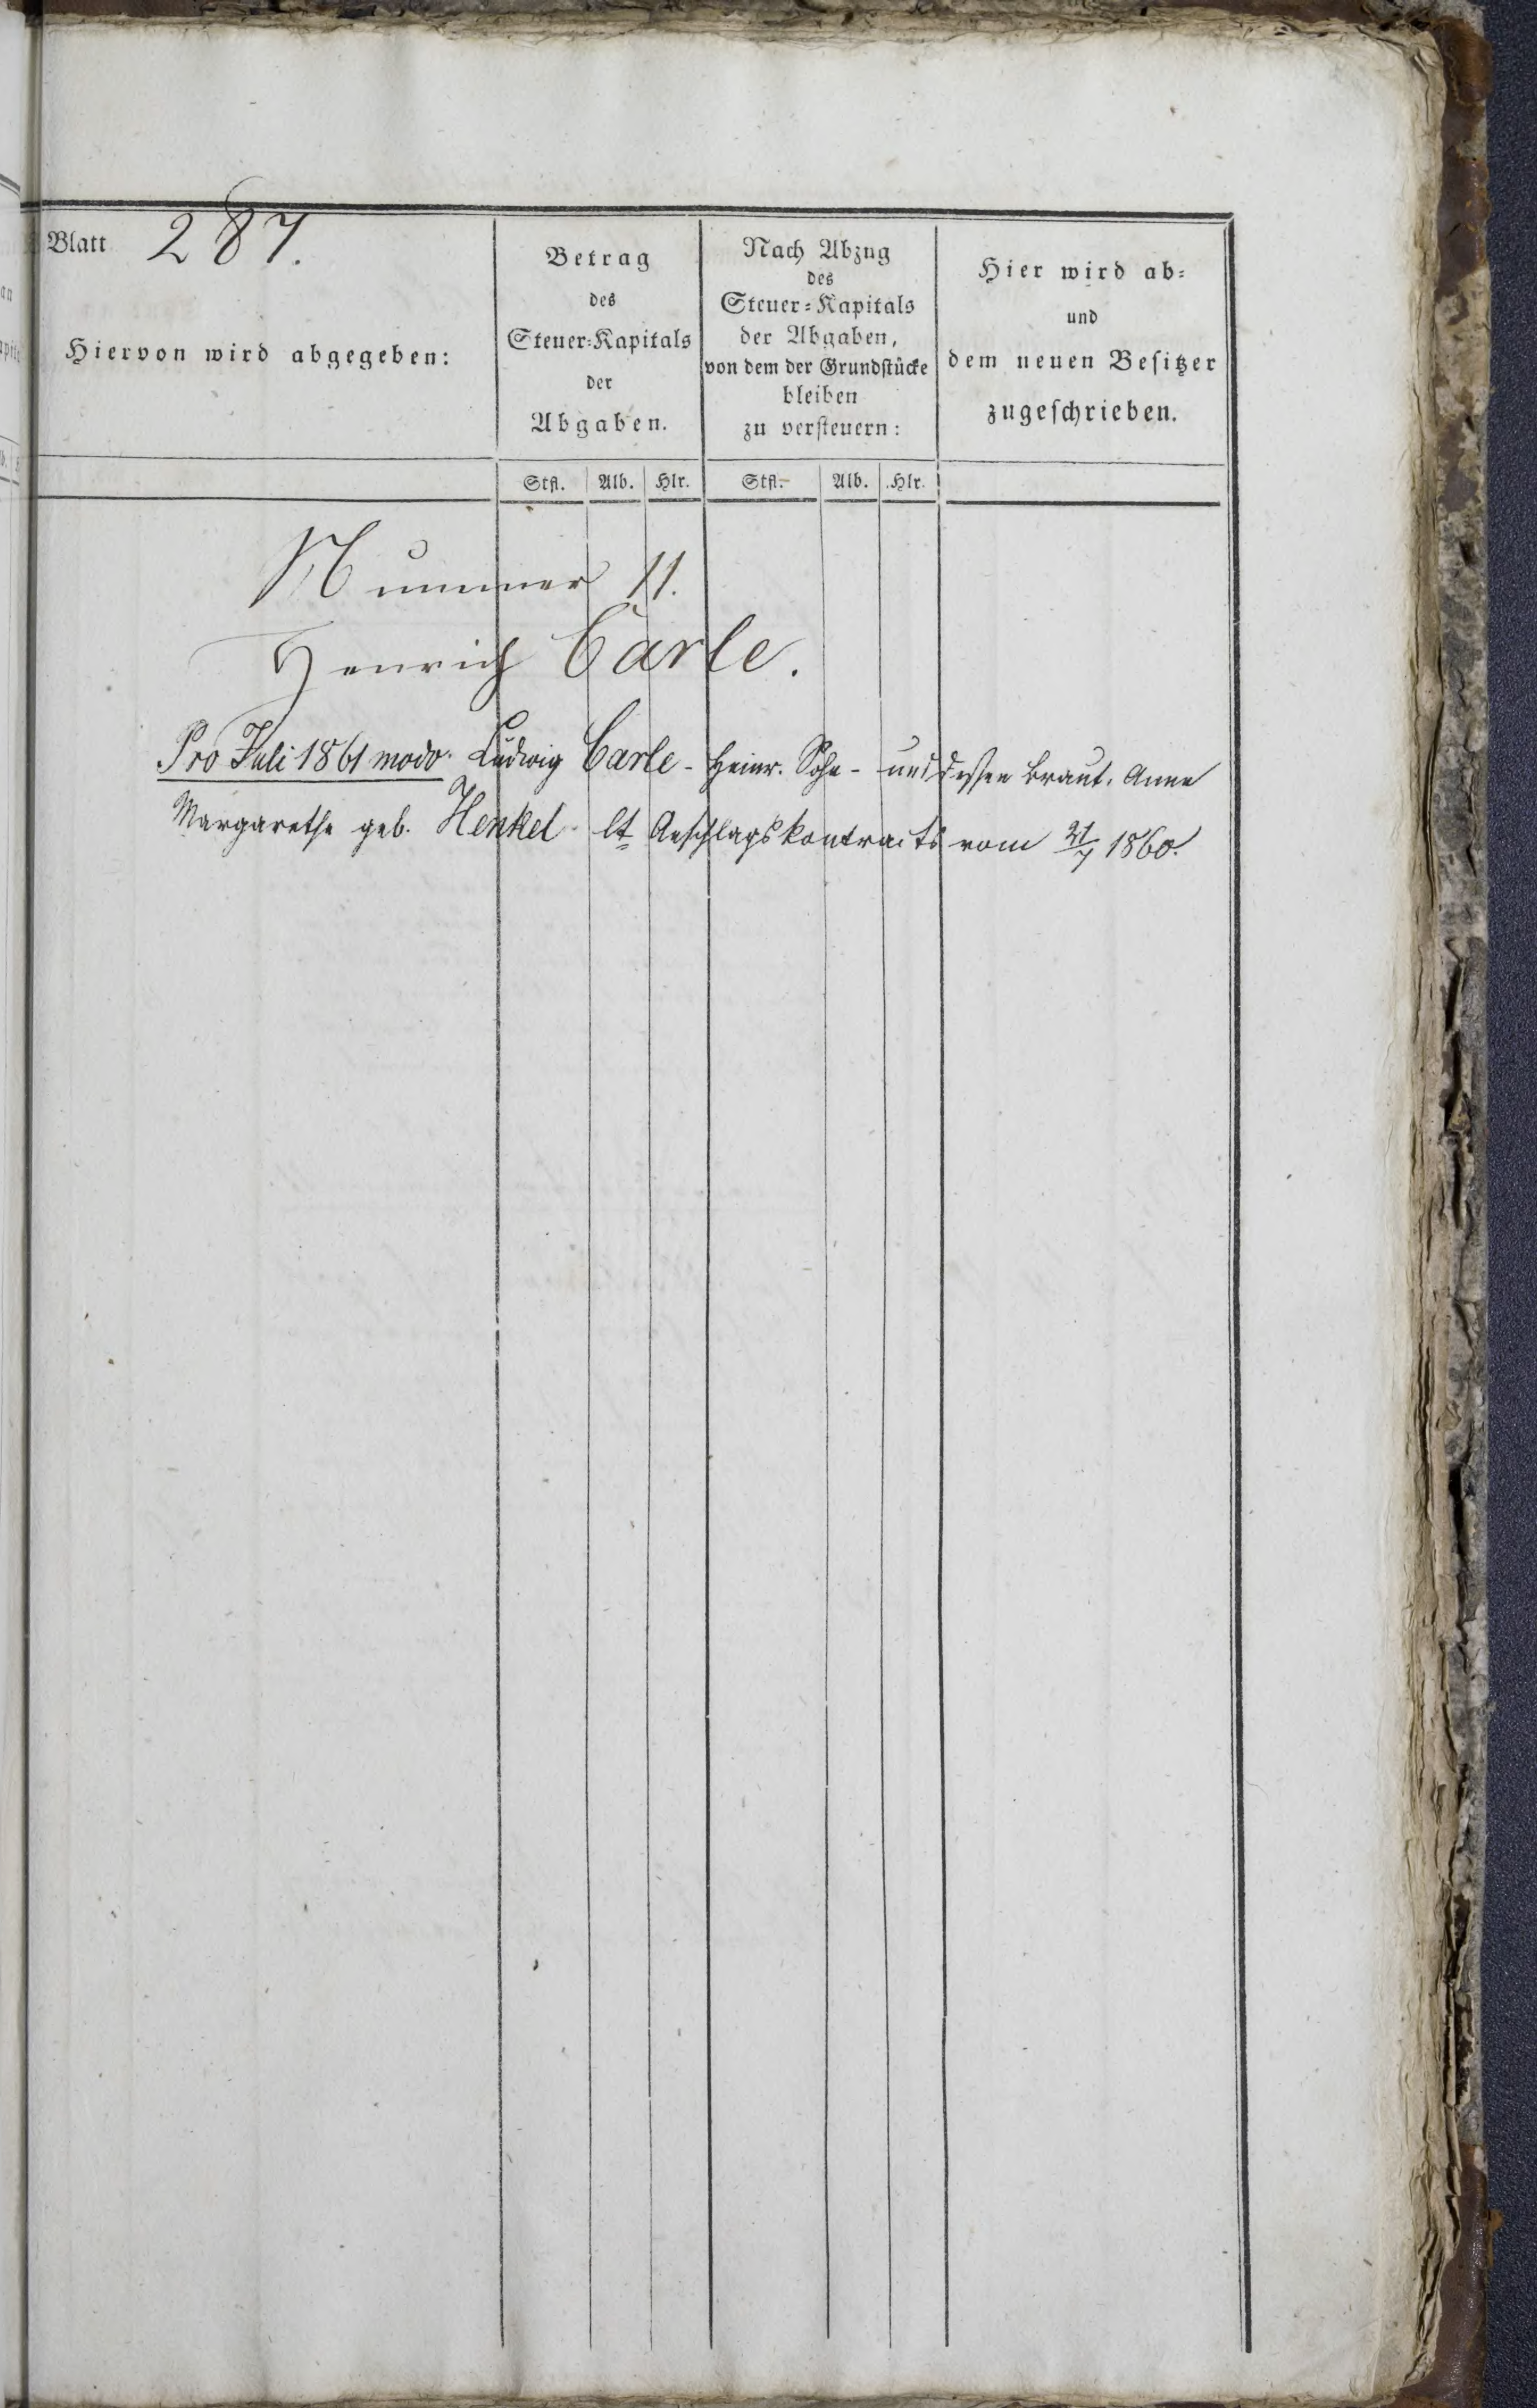 Blatt 287.
Hiervon wird abgegeben:
Betrag
des
Steuer-Kapitals
der
Abgaben.
Nach Abzug
des
Steuer-Kapitals
der Abgaben,
von dem der Grundstücke
bleiben
zu versteuern:
Hier wird ab-
und
dem neuen Besitzer
zugeschrieben.
Stfl. Alb. Hlr. Stfl. Alb. Hlr.
Nummer 11.
Henrich Carle.
Pro Juli 1861 modo. Ludwig Carle - Heinr. Sohn - und dessen Braut. Anna
Margarethe geb. Henkel lt Anschlagskontracts vom 21/7 1860.